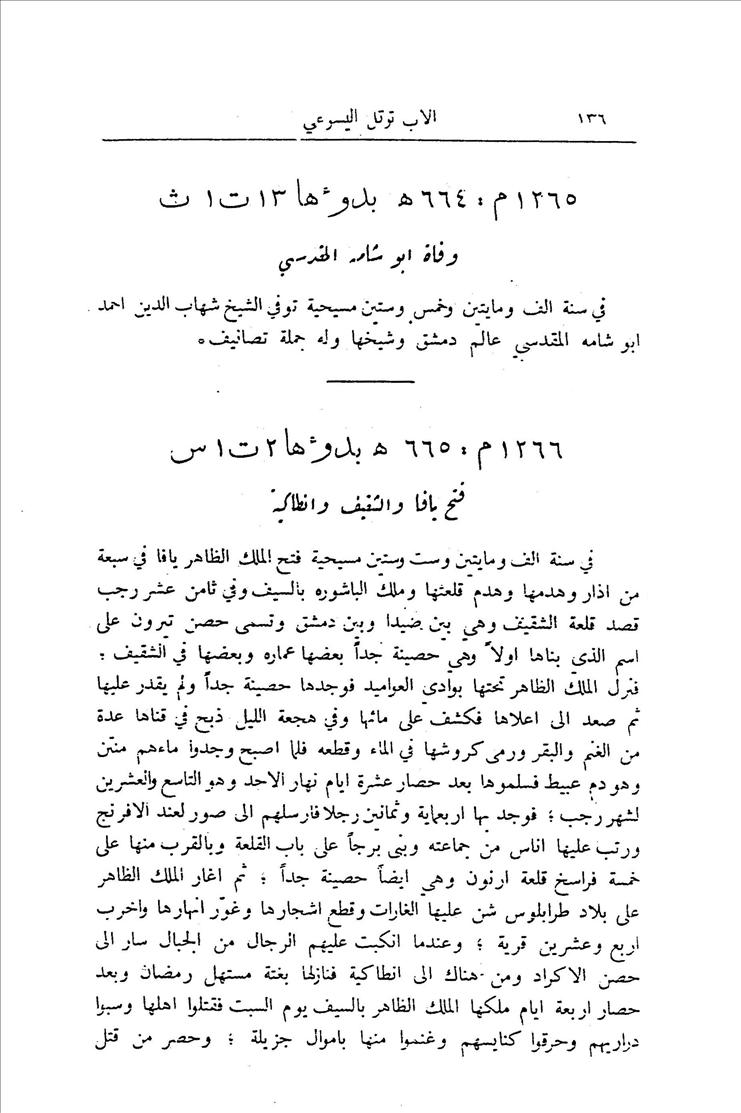 ١٣٦
الاب توتل اليسوعي
١٢٦٥ م : ٦٦٤ ھ بدوءها ١٣ ت ١ ث
وفاة ابو شامه المقدسي
في سنة الف ومايتين وخمس وستين مسيحية توفي الشيخ شهاب الدين احمد
ابو شامه المقدسي عالم دمشق وشيخها وله جملة تصانيف ٠
١٢٦٦ م : ٦٦٥ ھ بدوءها ٢ ت ١ س
فتح يافا والشقيف وانطاكية
في سنة الف ومايتين وست وستين مسيحية فتح الملك الظاهر يافا في سبعة
من اذار وهدمها وهدم قلعتها وملك الباشوره بالسيف وفي ثامن عشر رجب
قصد قلعة الشقيف وهي بين ضيدا وبين دمشق وتسمى حصن تيرون على
اسم الذي بناها اولاً وهي حصينة جداً بعضها عماره وبعضها في الشقيف ؛
فنزل الملك الظاهر تحتها بوادي العواميد فوجدها حصينة جداً ولم يقدر عليها
ثم صعد الى اعلاها فكشف على مائها وفي هجعة الليل ذبح في قناها عدة
من الغنم والبقر ورمى كروشها في الماء وقطعه فلما اصبح وجدوا ماءهم منتن
وهو دم عبيط فسلموها بعد حصار عشرة ايام نهار الاحد وهو التاسع والعشرين
لشهر رجب ؛ فوجد بها اربعماية وثمانين رجلا فارسلهم الى صور لعند الافرنج
ورتب عليها اناس من جماعته وبنى برجاً على باب القلعة وبالقرب منها على
خمسة فراسخ قلعة ارنون وهي ايضاً حصينة جداً ؛ ثم اغار الملك الظاهر
على بلاد طرابلوس شن عليها الغارات وقطع اشجارها وغوّر انهارها واخرب
اربع وعشرين قرية ؛ وعندما انكبت عليهم الرجال من الجبال سار الى
حصن الاكراد ومن هناك الى انطاكية فنازلها بغتة مستهل رمضان وبعد
حصار اربعة ايام ملكها الملك الظاهر بالسيف يوم السبت فقتلوا اهلها وسبوا
دراريهم وحرقوا كنايسهم وغنموا منها باموال جزيلة ؛ وحصر من قتل